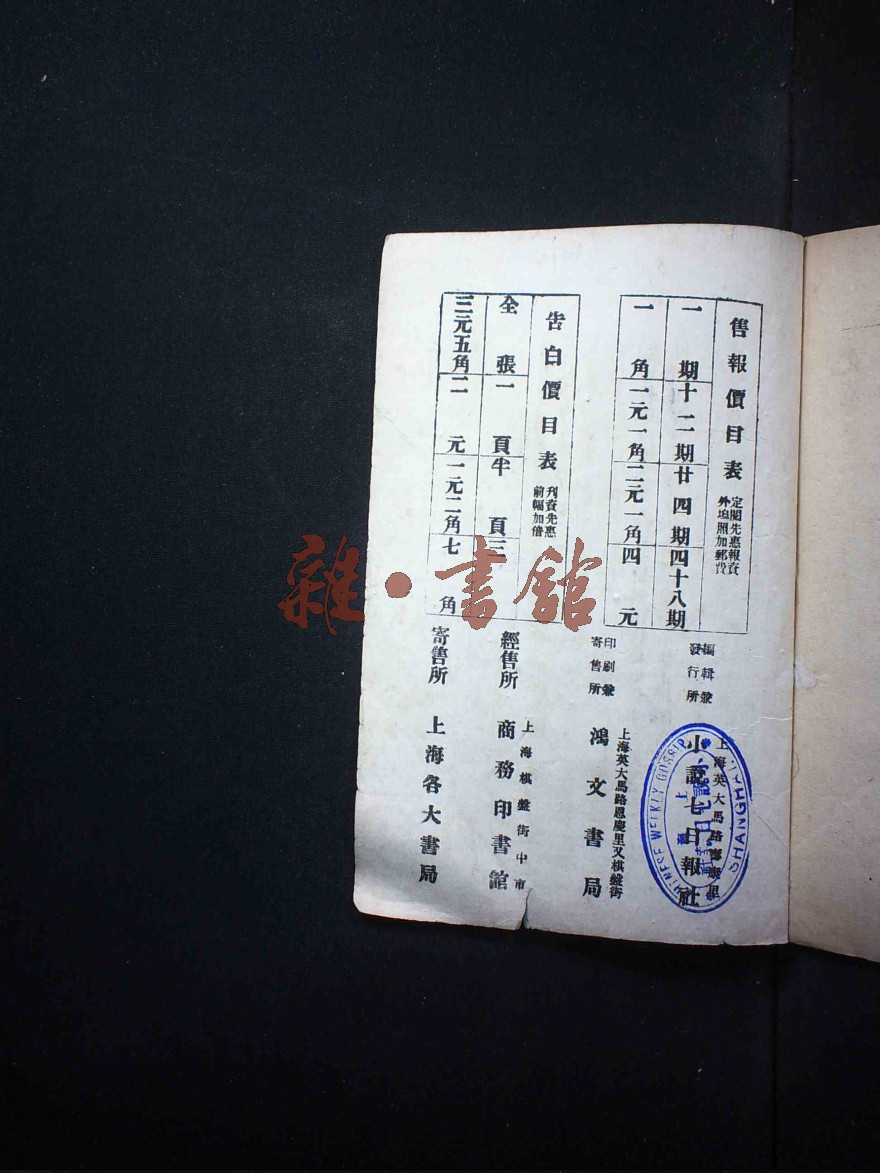 售報價目表
定閱先惠報資
外埠照加郵費
一期 十二期 廿四期 四十八期
一角 一元一角 二元一角 四元
告白價目表
刊資先惠
前幅加倍
全張 一頁 半頁 三
三元五角 二元 一元二角 七角
編輯兼
發行所
上海英大馬路
里
小說七日報社
印刷兼
寄售所
上海英大馬路恩慶里又棋盤街
鴻文書局
經售所
上海棋盤街中市
商務印書館
寄售所
上海各大書局
CHINESE WEEKLY GOSSIP
SHANGHAI
雜·書館